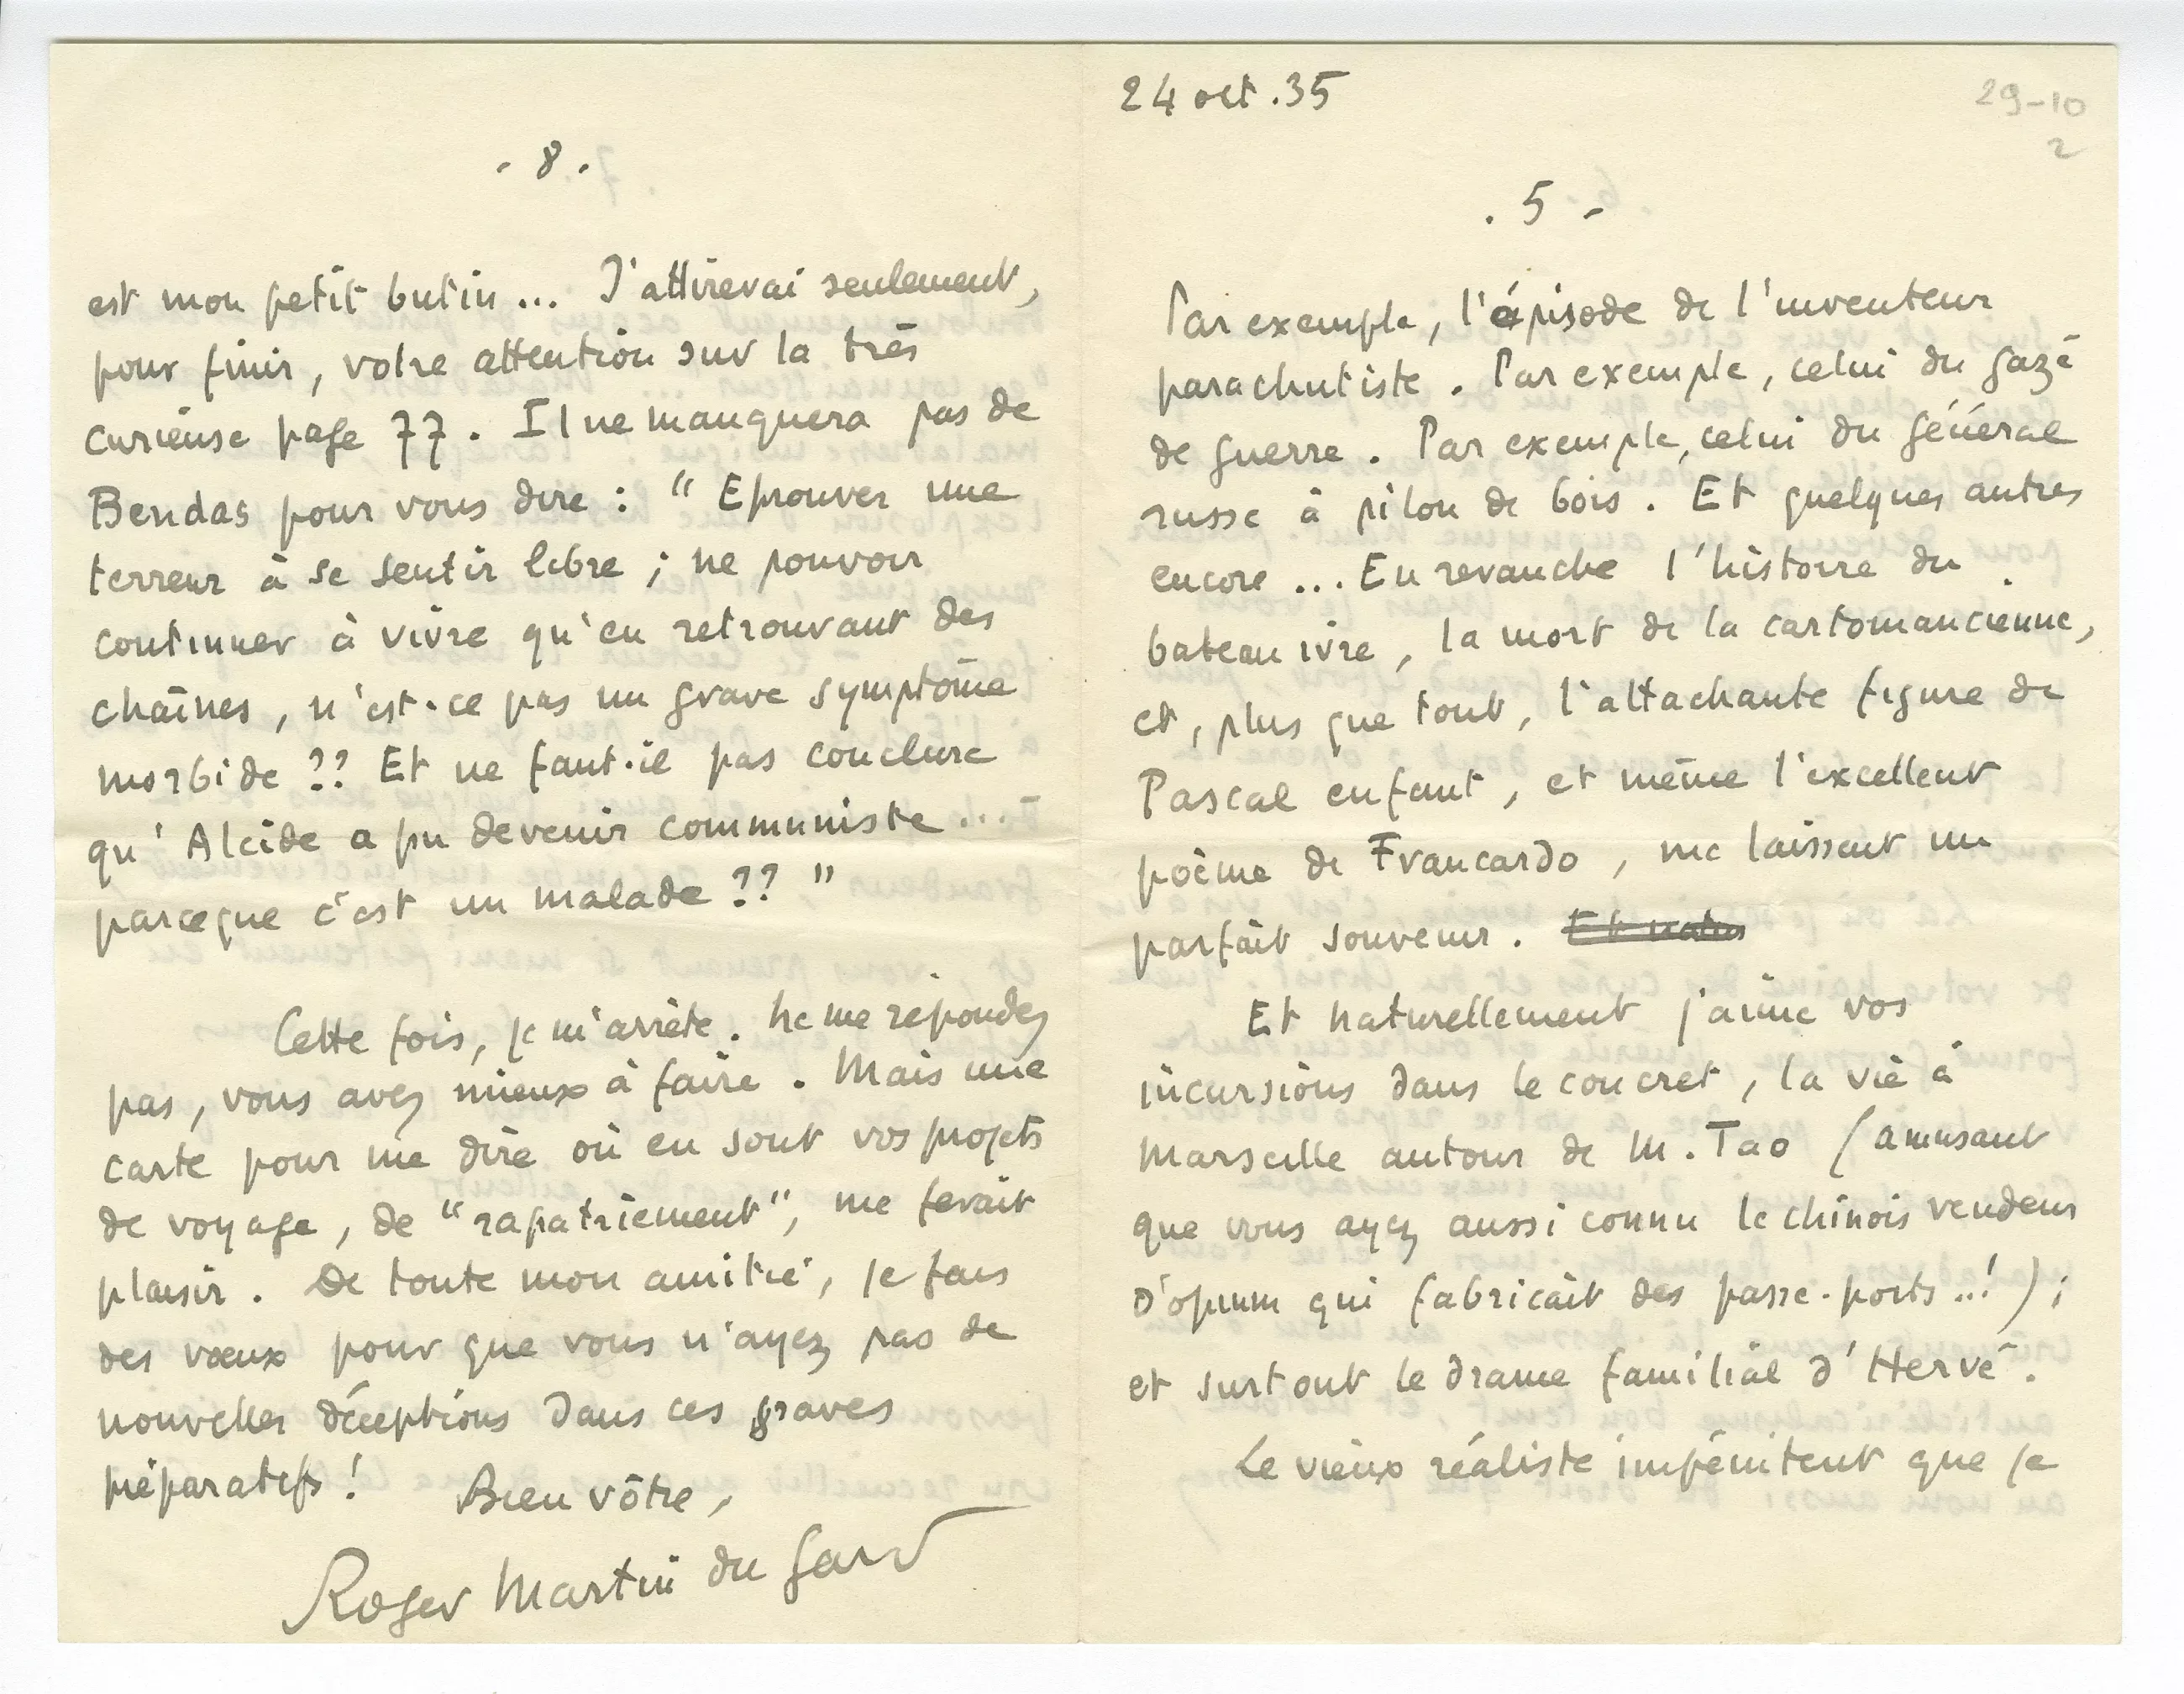 - 8 -
est mon petit butin... J'attirerai seulement,
pour finir, votre attention sur la très
curieuse page 77. Il ne manquera pas de
Bendas pour vous dire : " Eprouver une
terreur à se sentir libre ; ne pouvoir
continuer à vivre qu'en retrouvant des
chaînes, n'est-ce pas un grave symptôme
morbide ?? Et ne faut-il pas conclure
qu'Alcide a pu devenir communiste...
parceque c'est un malade ?? "
Cette fois, je m'arrête. Ne me répondez
pas, vous avez mieux à faire. Mais une
carte pour me dire où en sont vos projets
de voyage, de "rapatriement", me ferait
plaisir. De toute mon amitié, je fais
des vœux pour que vous n'ayez pas de
nouvelles déceptions dans ces graves
préparatifs ! Bien vôtre,
Roger Martin du Gard
24 oct. 35
29-10
2
. 5 -
Par exemple, l'épisode de l'inventeur
parachutiste. Par exemple, celui du gazé
de guerre. Par exemple, celui du général
russe à pilon de bois. Et quelques autres
encore... En revanche l'histoire du
bateau ivre, la mort de la cartomancienne,
et, plus que tout, l'attachante figure de
Pascal enfant, et même l'excellent
poème de Francardo, me laissent un
parfait souvenir. Et natu
Et naturellement j'aime vos
incursions dans le concret, la vie à
Marseille autour de M. Tao (amusant
que vous ayez aussi connu le chinois vendeur
d'opium qui fabricait des passe-ports..!) ;
et surtout le drame familial d'Hervé.
Le vieux réaliste impénitent que je